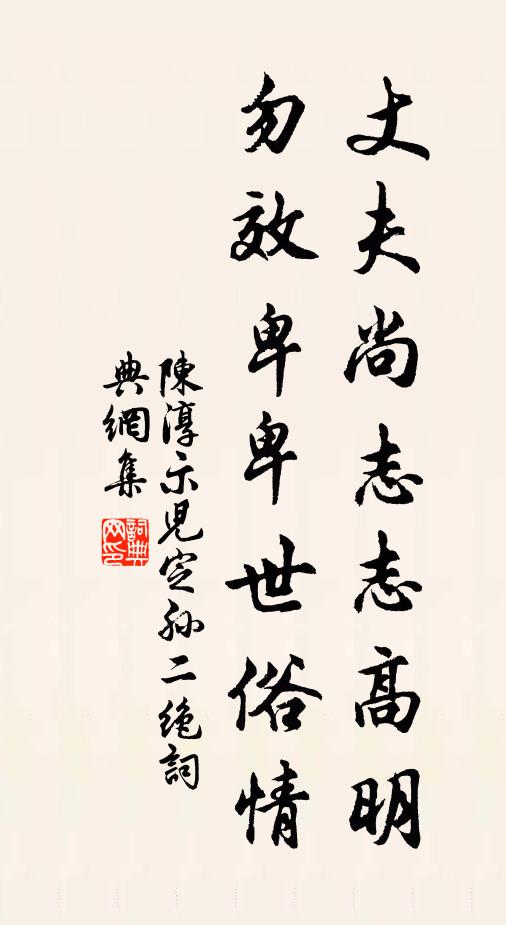 丈夫尚志志高明
勿效卑卑世俗情
陳淳示児定孙二绝詞
典網集
詞典网印